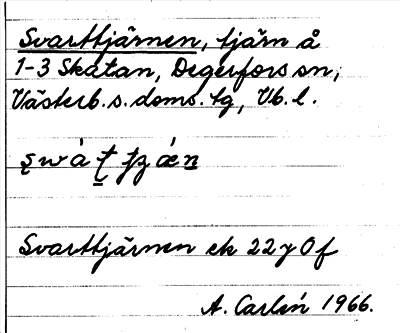 Svarttjärnen, tjärn å
1-3 Skatan, Degerfors sn,
Västerb. s. doms. tg, Vb. l.
Svarttjärnen ek 22 y 0 f
A. Carlén 1966.